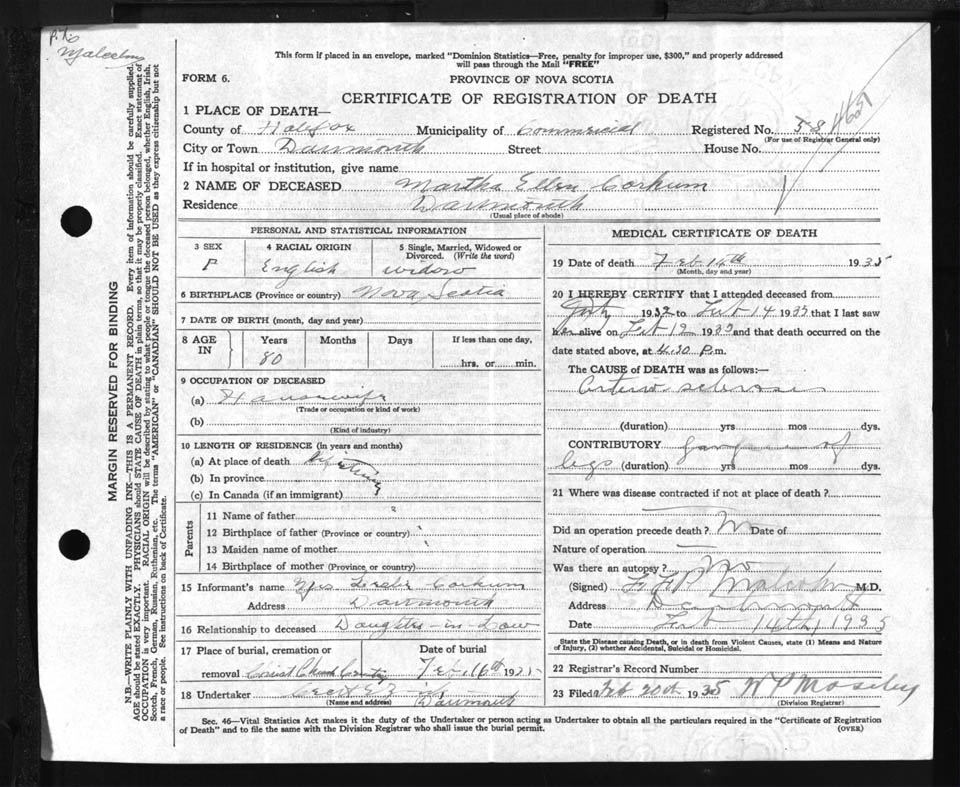 Malcolm
This form if placed in an envelope, marked "Dominion Statistics—Free, penalty for improper use, $300," and properly addressed
will pass through the Mail "FREE"
FORM 6.
PROVINCE OF NOVA SCOTIA
CERTIFICATE OF REGISTRATION OF DEATH
1 PLACE OF DEATH—
County of Halifax Municipality of Commercial Registered No. 58
(For use of Registrar General only)
City or Town Dartmouth Street House No.
If in hospital or institution, give name
2 NAME OF DECEASED Martha Ellen Corkum
Residence Dartmouth
(Usual place of abode)
PERSONAL AND STATISTICAL INFORMATION
3 SEX 4 RACIAL ORIGIN 5 Single, Married, Widowed or
Divorced. (Write the word)
F English widow
6 BIRTHPLACE (Province or country) Nova Scotia
7 DATE OF BIRTH (month, day and year)
8 AGE IN Years Months Days If less than one day,
80 hrs. or min.
9 OCCUPATION OF DECEASED
(a) Housewife
(Trade or occupation or kind of work)
(b)
(Kind of industry)
10 LENGTH OF RESIDENCE (in years and months)
(a) At place of death
(b) In province
(c) In Canada (if an immigrant)
Parents
11 Name of father
12 Birthplace of father (Province or country)
13 Maiden name of mother
14 Birthplace of mother (Province or country)
15 Informant's name Mrs Leslie Corkum
Address Dartmouth
16 Relationship to deceased Daughter-in-Law
17 Place of burial, cremation or Date of burial
removal Christ Church Cemetery Feb. 16th 1935
18 Undertaker Cecil E.
(Name and address) Dartmouth
MEDICAL CERTIFICATE OF DEATH
19 Date of death Feb 14th 1935
(Month, day and year)
20 I HEREBY CERTIFY that I attended deceased from
1932 to Feb 14 1935 that I last saw
her alive on Feb 12 1935 and that death occurred on
the date stated above, at 4.30 P.m.
The CAUSE of DEATH was as follows:—
Arterio sclerosis
(duration) yrs mos dys.
CONTRIBUTORY gangrene of
legs (duration) yrs mos dys.
21 Where was disease contracted if not at place of death?
Did an operation precede death? No Date of
Nature of operation
Was there an autopsy? No
(Signed) Malcolm M.D.
Address Dartmouth
Date Feb 14th, 1935
State the Disease causing Death, or in death from Violent Causes, state (1) Means and Nature
of Injury, (2) whether Accidental, Suicidal or Homicidal.
22 Registrar's Record Number
23 Filed Feb 20th 1935 W P Moseley
(Division Registrar)
Sec. 46—Vital Statistics Act makes it the duty of the Undertaker or person acting as Undertaker to obtain all the particulars required in the "Certificate of Registration
of Death" and to file the same with the Division Registrar who shall issue the burial permit. (OVER)
MARGIN RESERVED FOR BINDING
N.B.—WRITE PLAINLY WITH UNFADING INK—THIS IS A PERMANENT RECORD. Every item of information should be carefully supplied.
AGE should be stated EXACTLY. PHYSICIANS should STATE CAUSE OF DEATH in plain terms, so that it may be properly classified. Exact statement of
OCCUPATION is very important. RACIAL ORIGIN will be described by stating to what people or tongue the deceased person belonged, whether English, Irish,
Scotch, French, German, Russian, Ruthenian, etc. The terms "AMERICAN" or "CANADIAN" SHOULD NOT BE USED as they express citizenship but not
a race or people. See instructions on back of Certificate.